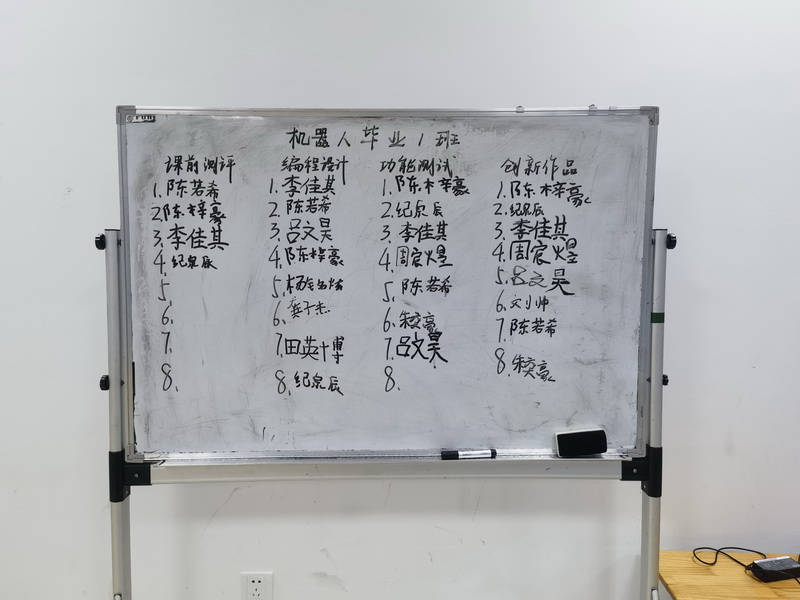 机器人毕业1班
课前测评
1.陈若希
2.陈梓豪
3.李佳其
4.纪泉辰
5.
6.
7.
8.
编程设计
1.李佳其
2.陈若希
3.吕文昊
4.陈梓豪
5.杨
6.龚子杰
7.田英博
8.纪泉辰
功能测试
1.陈梓豪
2.纪泉辰
3.李佳其
4.周宸煜
5.陈若希
6.朱奕豪
7.吕文昊
8.
创新作品
1.陈梓豪
2.纪泉辰
3.李佳其
4.周宸煜
5.吕文昊
6.刘小帅
7.陈若希
8.朱奕豪